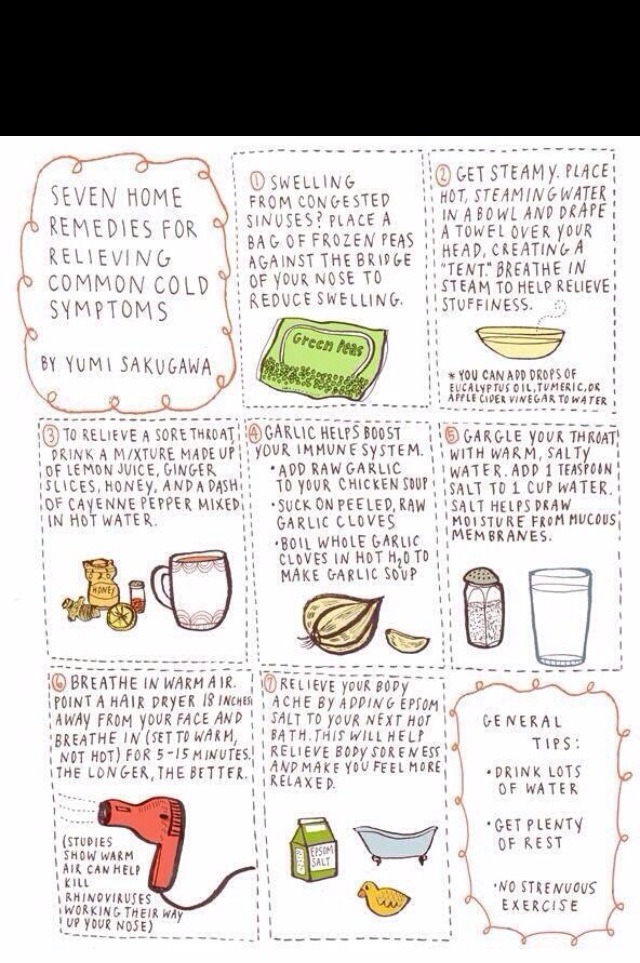 SEVEN HOME
REMEDIES FOR
RELIEVING
COMMON COLD
SYMPTOMS
BY YUMI SAKUGAWA
① SWELLING
FROM CONGESTED
SINUSES? PLACE A
BAG OF FROZEN PEAS
AGAINST THE BRIDGE
OF YOUR NOSE TO
REDUCE SWELLING.
Green Peas
② GET STEAMY. PLACE
HOT, STEAMING WATER
IN A BOWL AND DRAPE
A TOWEL OVER YOUR
HEAD, CREATING A
"TENT." BREATHE IN
STEAM TO HELP RELIEVE
STUFFINESS.
* YOU CAN ADD DROPS OF
EUCALYPTUS OIL, TUMERIC, OR
APPLE CIDER VINEGAR TO WATER
③ TO RELIEVE A SORE THROAT,
DRINK A MIXTURE MADE UP
OF LEMON JUICE, GINGER
SLICES, HONEY, AND A DASH
OF CAYENNE PEPPER MIXED
IN HOT WATER.
HONEY
④ GARLIC HELPS BOOST
YOUR IMMUNE SYSTEM.
• ADD RAW GARLIC
TO YOUR CHICKEN SOUP
• SUCK ON PEELED, RAW
GARLIC CLOVES
• BOIL WHOLE GARLIC
CLOVES IN HOT H₂O TO
MAKE GARLIC SOUP
⑤ GARGLE YOUR THROAT
WITH WARM, SALTY
WATER. ADD 1 TEASPOON
SALT TO 1 CUP WATER.
SALT HELPS DRAW
MOISTURE FROM MUCOUS
MEMBRANES.
⑥ BREATHE IN WARM AIR.
POINT A HAIR DRYER 18 INCHES
AWAY FROM YOUR FACE AND
BREATHE IN (SET TO WARM,
NOT HOT) FOR 5-15 MINUTES.
THE LONGER, THE BETTER.
(STUDIES
SHOW WARM
AIR CAN HELP
KILL
RHINOVIRUSES
WORKING THEIR WAY
UP YOUR NOSE)
⑦ RELIEVE YOUR BODY
ACHE BY ADDING EPSOM
SALT TO YOUR NEXT HOT
BATH. THIS WILL HELP
RELIEVE BODY SORENESS
AND MAKE YOU FEEL MORE
RELAXED.
EPSOM
SALT
GENERAL
TIPS:
• DRINK LOTS
OF WATER
• GET PLENTY
OF REST
• NO STRENUOUS
EXERCISE